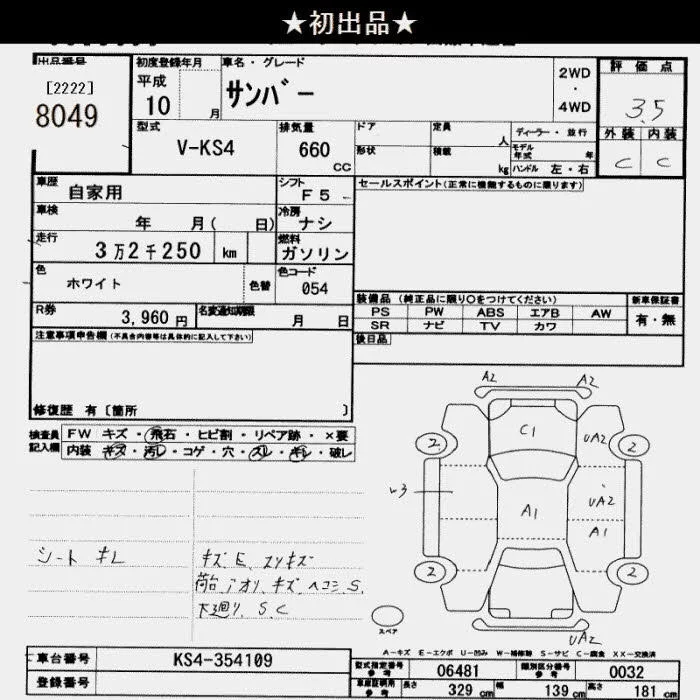 ★初出品★
出品番号 初度登録年月 車名・グレード 2WD・4WD 評価点
[2222] 平成 サンバー 3.5
8049 10 月
型式 排気量 ドア 定員 人 ディーラー・並行 外装 内装
V-KS4 660 CC 形状 積載 kg モデル年式 年 C C
ハンドル 左・右
車歴 自家用 シフト F5 セールスポイント(正常に機能するものに限ります)
車検 年 月( 日) 冷房 ナシ
走行 3万2千250 km 燃料 ガソリン
色 ホワイト 色替 色コード 054
装備品 (純正品に限り○をつけてください) 新車保証書
R券 3,960 円 名変通知期限 月 日 PS PW ABS エアB AW 有・無
SR ナビ TV カワ
注意事項申告欄(不具合内容等は具体的に記入して下さい) 後日品
修復歴 有〔箇所 〕
検査員記入欄 FW キズ・飛石・ヒビ割・リペア跡・×要
内装 キズ・汚レ・コゲ・穴・スレ・キレ・破レ
A2 A2
C1 UA2
2 2
W3 UA2
A1 A1
2 2
スペア UA2
シート キレ キズ E. スリキズ
荷台, アオリ, キズ ヘコミ S.
下廻り. S. C
A-キズ E-エクボ U-凹み W-補修跡 S-サビ C-腐食 XX-交換済
車台番号 KS4-354109
登録番号
型式指定番号 参考 06481 類別区分番号 参考 0032
車庫証明用 参考 長さ 329 cm 幅 139 cm 高さ 181 cm